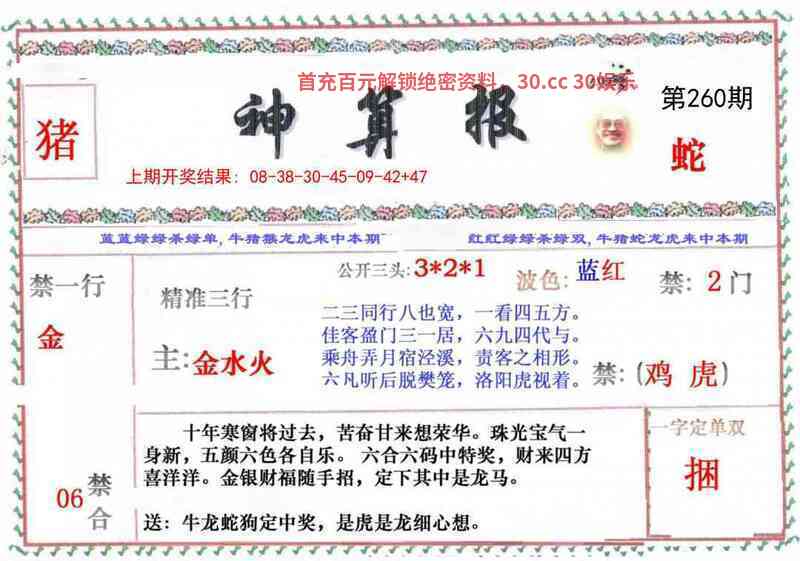 首充百元解锁绝密资料，30.cc 30娱乐
神算报
第260期
猪
蛇
上期开奖结果：08-38-30-45-09-42+47
蓝蓝绿绿杀绿单,牛猪猴龙虎来中本期
红红绿绿杀绿双,牛猪蛇龙虎来中本期
禁一行
金
精准三行
主:金水火
公开三头:3*2*1
波色:蓝红
禁:2门
二三同行八也宽，一看四五方。
佳客盈门三一居，六九四代与。
乘舟弄月宿泾溪，责客之相形。
六凡听后脱樊笼，洛阳虎视着。
禁:(鸡 虎)
06
禁合
十年寒窗将过去，苦奋甘来想荣华。珠光宝气一
身新，五颜六色各自乐。 六合六码中特奖，财来四方
喜洋洋。金银财福随手招，定下其中是龙马。
送：牛龙蛇狗定中奖，是虎是龙细心想。
一字定单双
捆